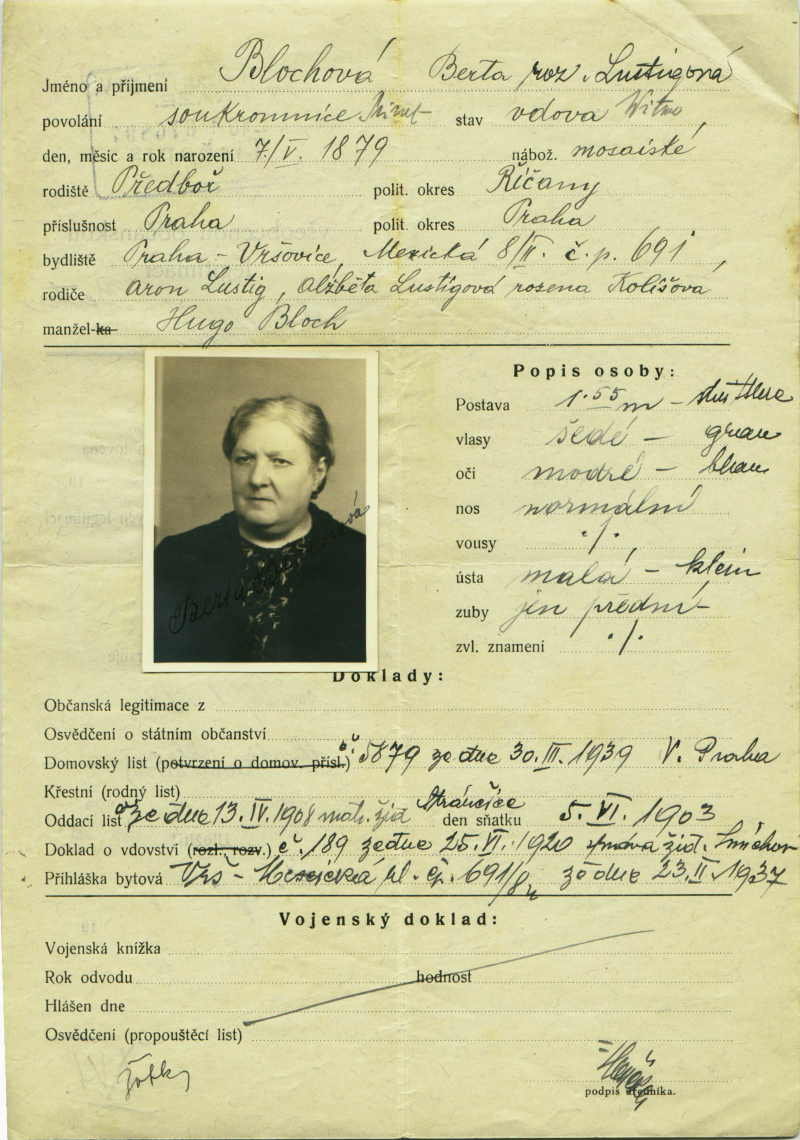 Jméno a příjmení Blochová Berta roz. Lustigová
povolání soukromnice stav vdova Witwe
den, měsíc a rok narození 7./V. 1879 nábož. mosaiské
rodiště Předboř polit. okres Říčany
příslušnost Praha polit. okres Praha
bydliště Praha - Vršovice, Mexická 8/II. č. p. 691
rodiče Aron Lustig, Alžběta Lustigová rozená Kolišova
manžel-ka Hugo Bloch
Popis osoby:
Postava 1.55 m -
vlasy šedé - grau
oči modré - blau
nos normální
vousy ./.
ústa malá - klein
zuby jen přední
zvl. znamení ./.
Doklady:
Občanská legitimace z
Osvědčení o státním občanství
Domovský list (potvrzení o domov. přísl.) 5879 ze dne 30. III. 1939 V. Praha
Křestní (rodný list)
Oddací list ze dne 13. IV. 1908 mat. žid Strančice den sňatku 5. VI. 1903
Doklad o vdovství (rozl., rozv.) č. 189 ze dne 25. VI. 1920 žid. Smíchov
Přihláška bytová Vrš - Mexická ul. čp. 691/8 ze dne 23. II. 1937
Vojenský doklad:
Vojenská knížka
Rok odvodu hodnost
Hlášen dne
Osvědčení (propouštěcí list)
podpis úředníka.